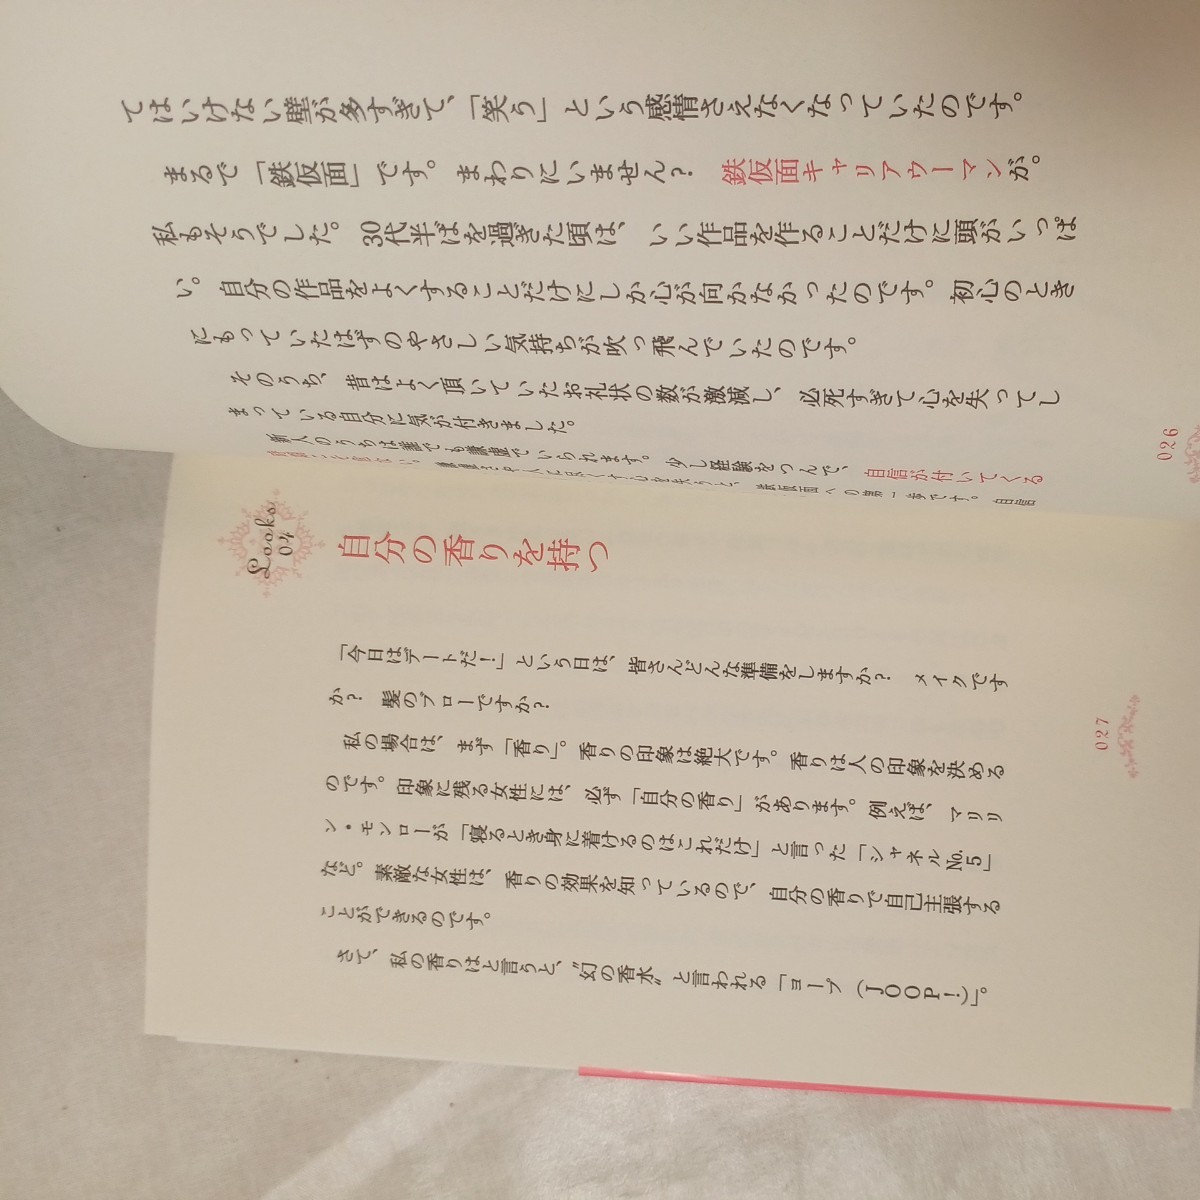 てはいけない壁が多すぎて、「笑う」という感情さえなくなっていたのです。
まるで「鉄仮面」です。まわりにいません? 鉄仮面キャリアウーマンが。
私もそうでした。30代半ばを過ぎた頃は、いい作品を作ることだけに頭がいっぱ
い。自分の作品をよくすることだけにしか心が向かなかったのです。初心のとき
にもっていたはずのやさしい気持ちが吹っ飛んでいたのです。
そのうち、昔はよく頂いていたお礼状の数が激減し、必死すぎて心を失ってし
まっている自分に気が付きました。
新人のうちは誰でも謙虚でいられます。少し経験をつんで、自信が付いてくる
を失うと、鉄仮面への第一歩です。自信
026
Looks
04
自分の香りを持つ
「今日はデートだ!」という日は、皆さんどんな準備をしますか? メイクです
か? 髪のブローですか?
私の場合は、まず「香り」。香りの印象は絶大です。香りは人の印象を決める
のです。印象に残る女性には、必ず「自分の香り」があります。例えば、マリリ
ン・モンローが「寝るとき身に着けるのはこれだけ」と言った「シャネルNo.5」
など。素敵な女性は、香りの効果を知っているので、自分の香りで自己主張する
ことができるのです。
さて、私の香りはと言うと、"幻の香水"と言われる「ヨープ(JOOP!)」。
027